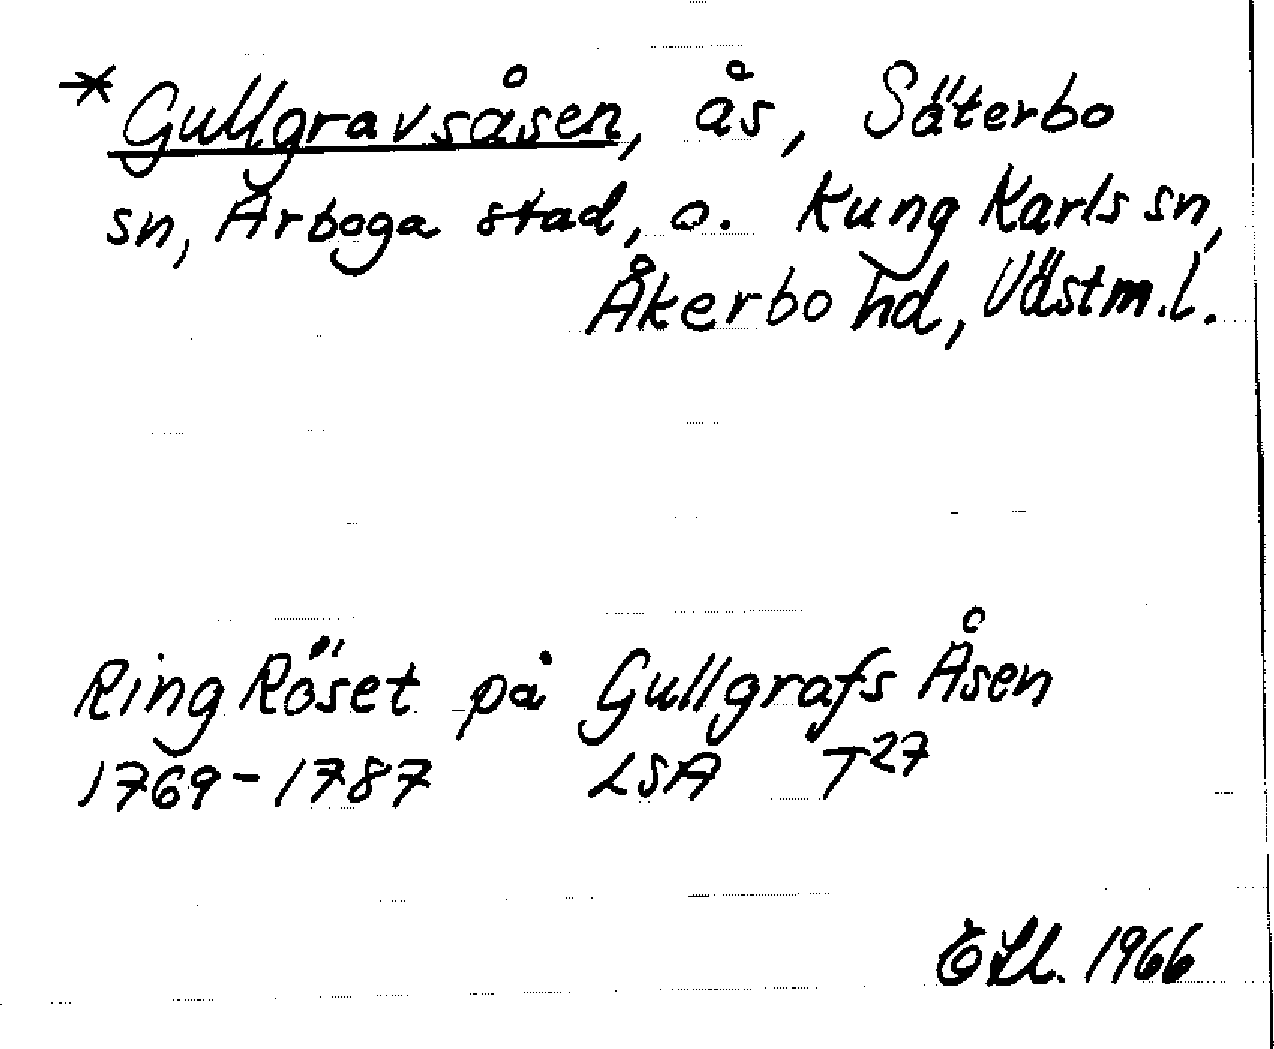 * Gullgravsåsen, ås, Säterbo
sn, Arboga stad, o. Kung Karls sn,
Åkerbo hd, Västm.l.
Ring Röset på Gullgrafs Åsen
1769-1787 LSA T27
1966